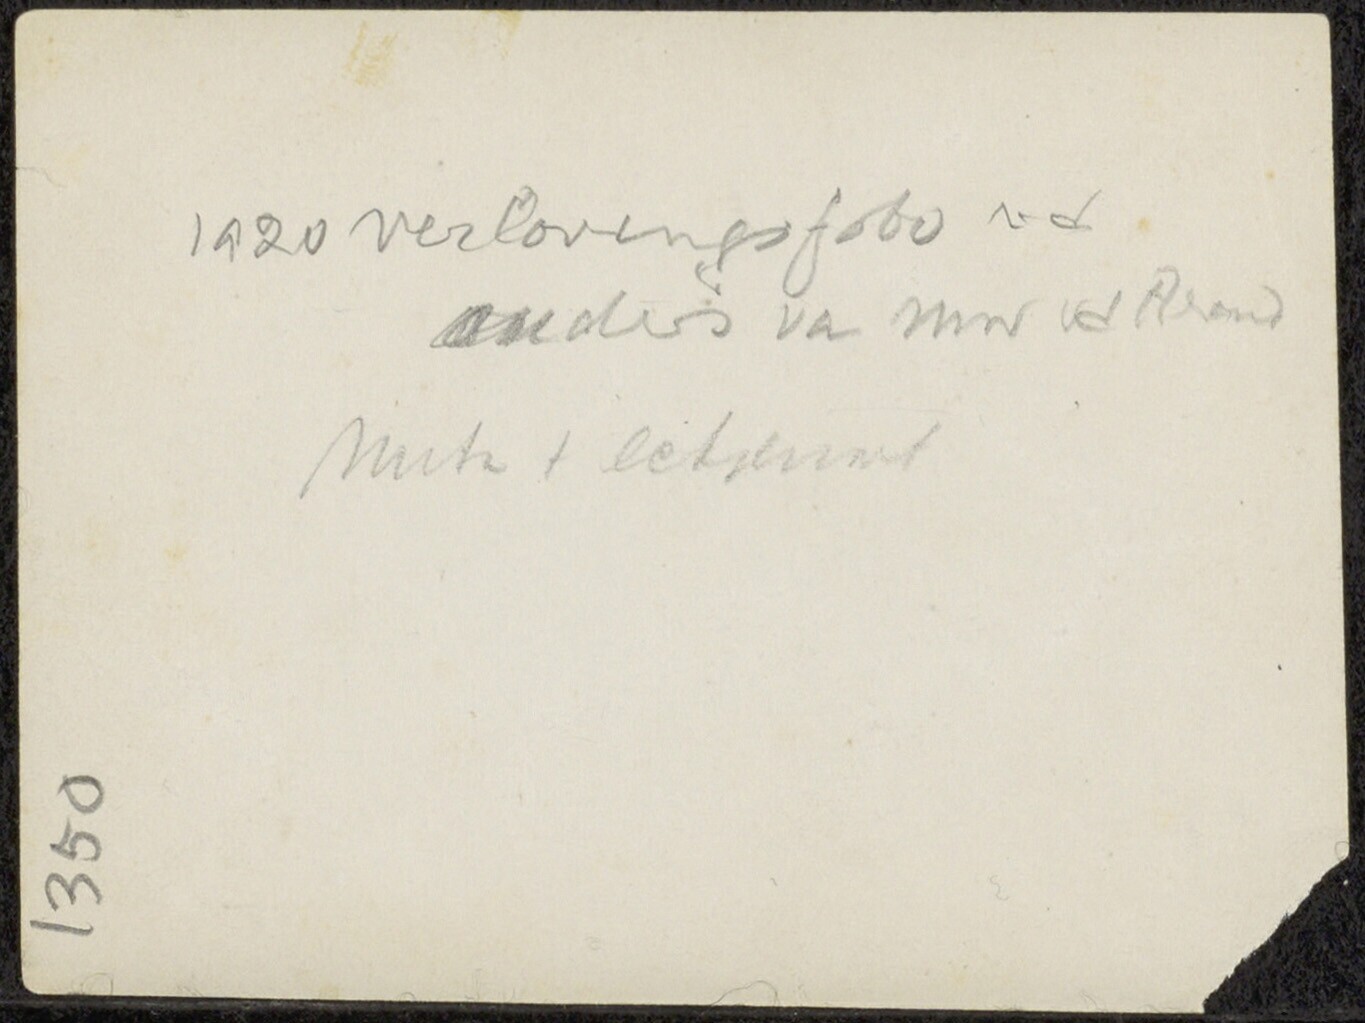 1920 verlovingsfoto vd
ouders va mw vd Brand
1350